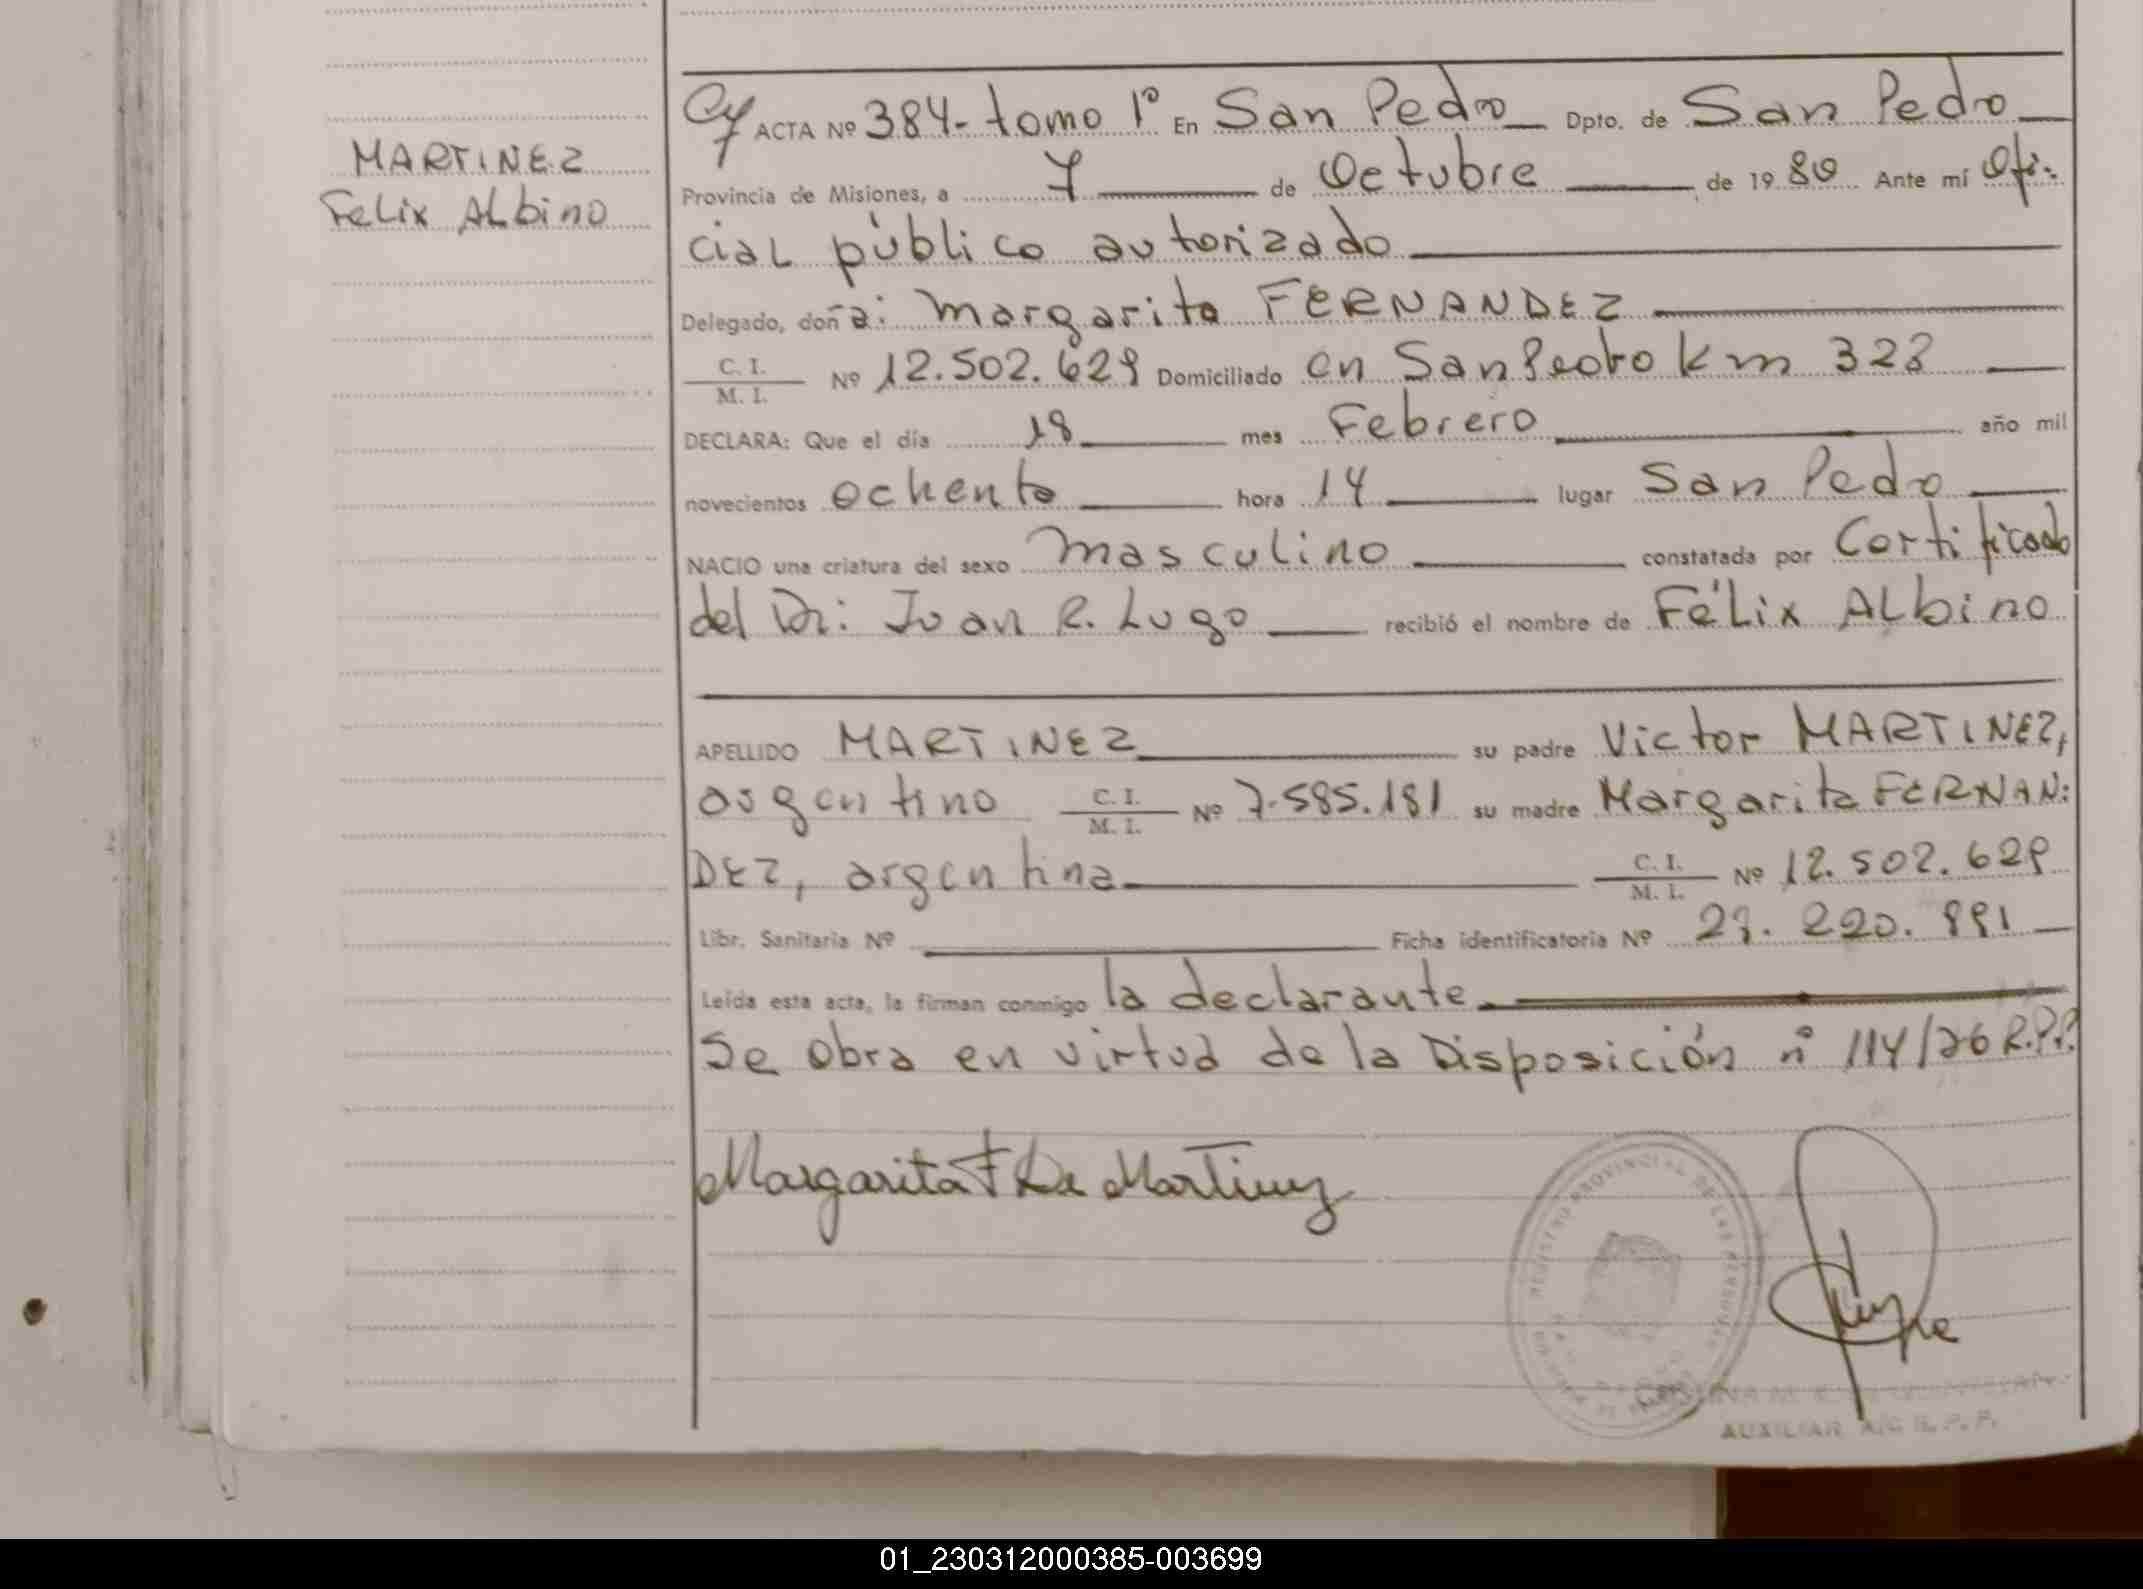 MARTINEZ
Felix ALbino
ACTA Nº 384- tomo 1º En San Pedro Dpto. de San Pedro
Provincia de Misiones, a 7 de Octubre de 1980 Ante mí Ofi-
cial público autorizado
Delegado, doña: Margarita FERNANDEZ
C. I.
M. I. Nº 12.502.629 Domiciliado en San Pedro Km 323
DECLARA: Que el día 18 mes Febrero año mil
novecientos ochenta hora 14 lugar San Pedro
NACIO una criatura del sexo masculino constatada por Certificado
del Dr: Juan R. Lugo recibió el nombre de FéLix ALbino
APELLIDO MARTINEZ su padre Victor MARTINEZ,
argentino C. I.
M. I. Nº 7.585.181 su madre Margarita FERNAN:
DEZ, argentina C. I.
M. I. Nº 12.502.629
Libr. Sanitaria Nº Ficha identificatoria Nº 220.991
Leída esta acta, la firman conmigo la declarante
Se obra en virtud de la Disposición nº 114/76 R.P.P.
Margarita F de Martinez
REGISTRO PROVINCIAL DE LAS PERSONAS
AUXILIAR A/C R.P.P.
01_230312000385-003699